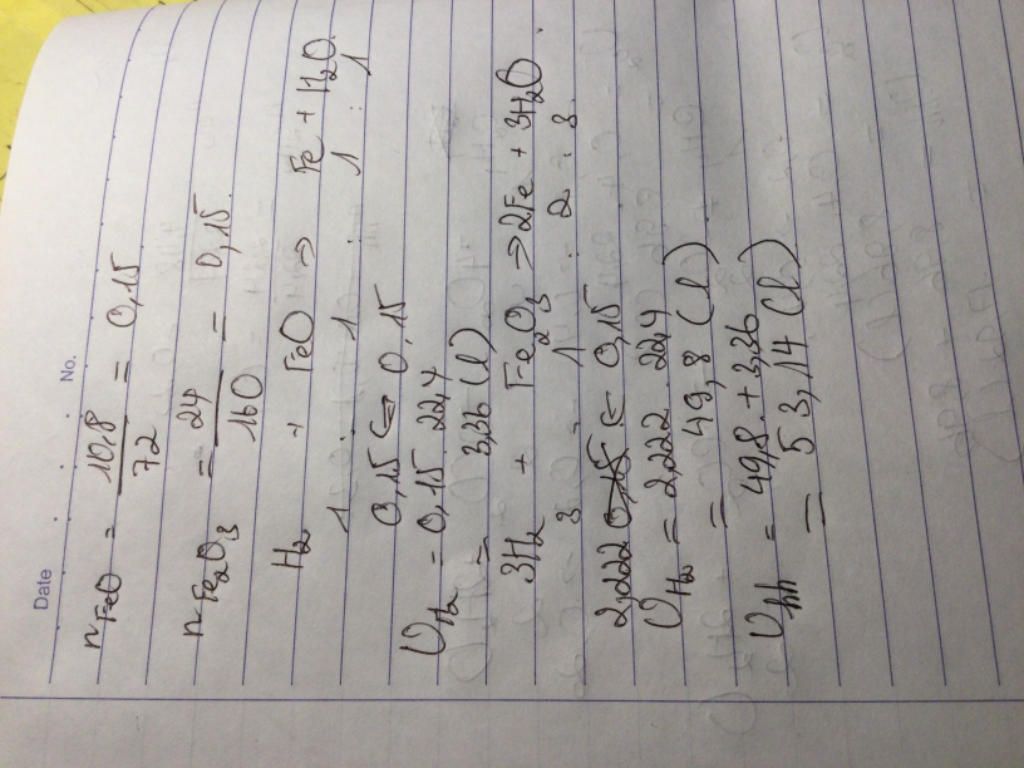 Date No.
nFeO = 10,8/72 = 0,15
nFe2O3 = 24/160 = 0,15
H2 + FeO => Fe + H2O
1 : 1 : 1 : 1
0,15 <= 0,15
VH2 = 0,15 . 22,4
= 3,36 (l)
3H2 + Fe2O3 => 2Fe + 3H2O.
3 : 1 : 2 : 3
2,222 0,15 <= 0,15
VH2 = 2,222 . 22,4
= 49,8 (l)
Vhh = 49,8 + 3,36
= 53,14 (l)